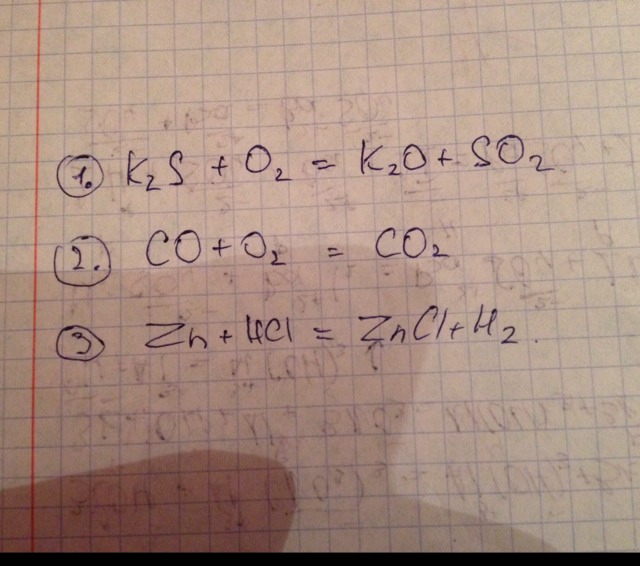 1. K₂S + O₂ = K₂O + SO₂
2. CO + O₂ = CO₂
3 Zn + HCl = ZnCl + H₂.